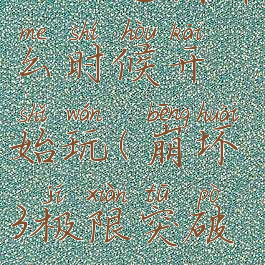 me shí hòu kāi
么时候开
shǐ wán bēng huài
始玩(崩坏
jí xiàn tū pò
3极限突破